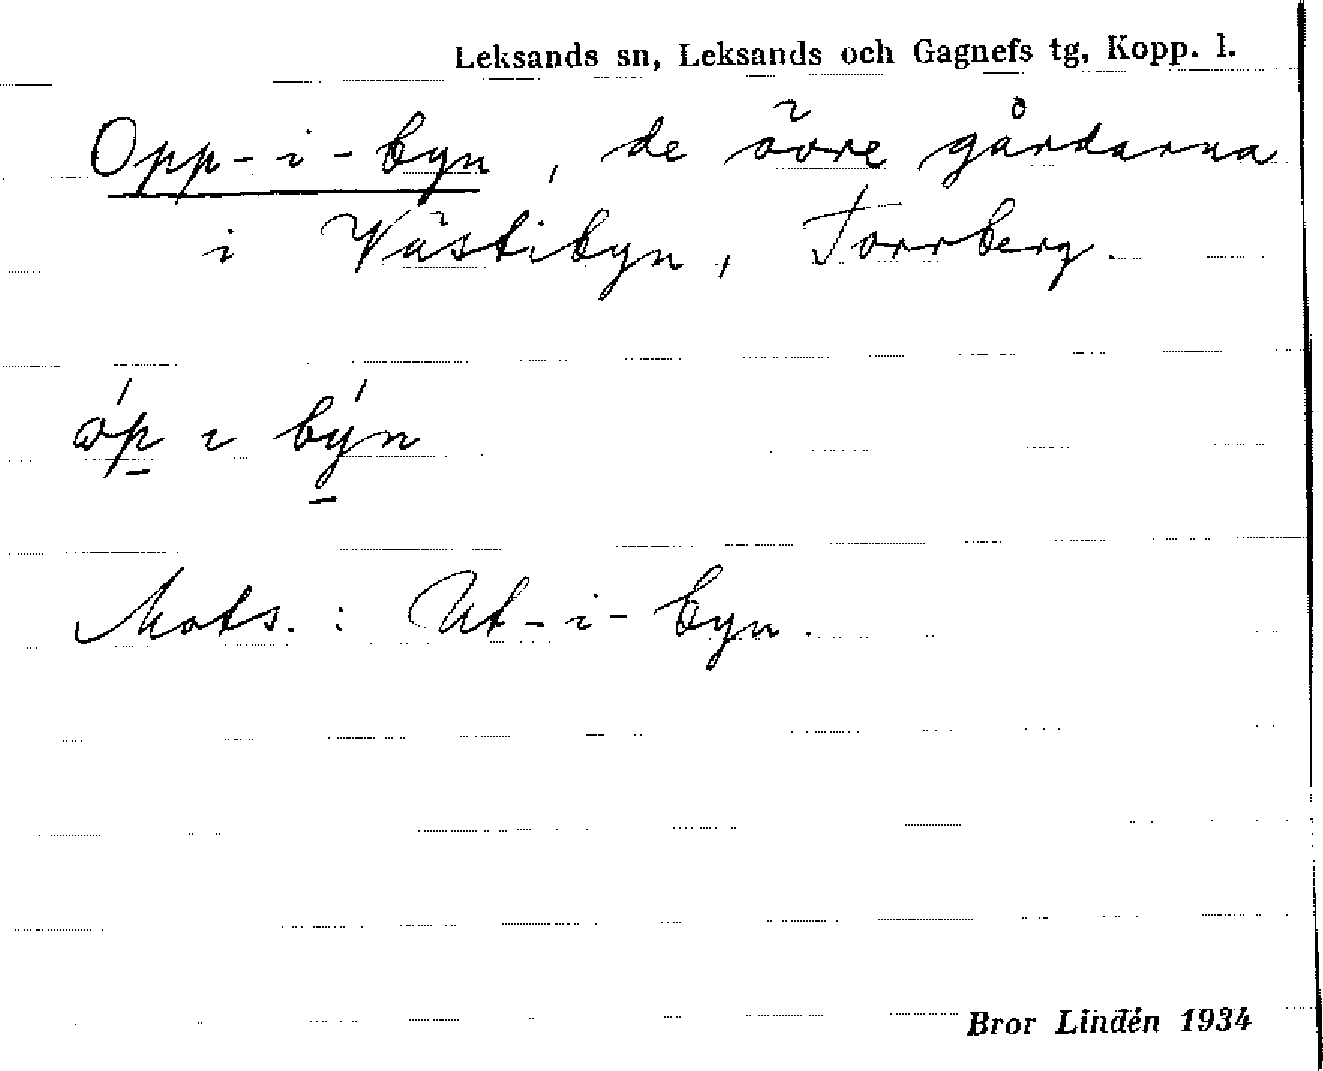 Leksands sn, Leksands och Gagnefs tg, Kopp. l.
Opp-i-byn, de övre gårdarna
i Västibyn, Torrberg.
ɷ́p ı bý̱n
Mots.: Ut-i-byn.
Bror Lindén 1934